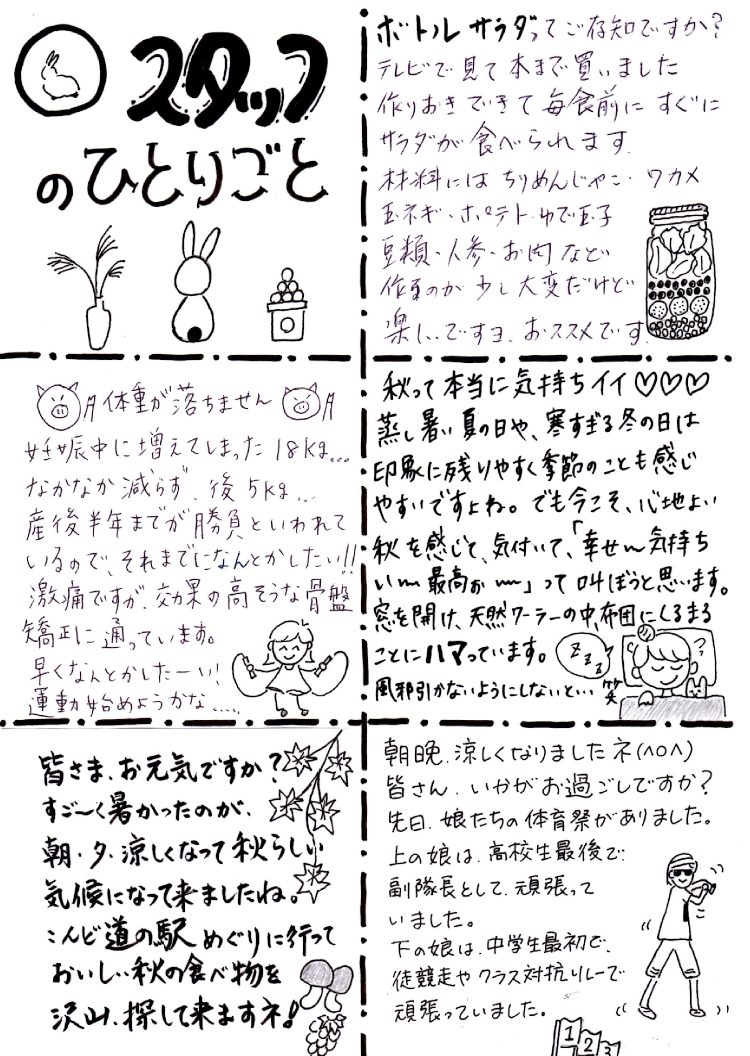 スタッフ
のひとりごと
ボトルサラダってご存知ですか？
テレビで見て本まで買いました
作りおきできて毎食前にすぐに
サラダが食べられます.
材料にはちりめんじゃこ・ワカメ
玉ネギ・ポテト・ゆで玉子
豆類・人参・お肉など
作るのが少し大変だけど
楽しいですヨ.おススメです.
体重が落ちません
妊娠中に増えてしまった18kg...
なかなか減らず、後5kg...
産後半年までが勝負といわれて
いるので、それまでになんとかしたい!!
激痛ですが、効果の高そうな骨盤
矯正に通っています。
早くなんとかしたーい!
運動始めようかな.....
秋って本当に気持ちイイ♡♡♡
蒸し暑い夏の日や、寒すぎる冬の日は
印象に残りやすく季節のことも感じ
やすいですよね。でも今こそ、心地よい
秋を感じて、気付いて、「幸せ〜気持ち
い〜最高ぉ〜」って叫ぼうと思います。
窓を開け、天然クーラーの中、布団にくるまる
ことにハマっています。
風邪引かないようにしないと…笑
zzz
皆さま、お元気ですか？
すご〜く暑かったのが、
朝・夕・涼しくなって秋らしい
気候になって来ましたね。
こんど道の駅めぐりに行って
おいしい秋の食べ物を
沢山、探して来ますネ!
朝晩、涼しくなりましたネ(^o^)
皆さん、いかがお過ごしですか？
先日、娘たちの体育祭がありました。
上の娘は、高校生最後で、
副隊長として、頑張って
いました。
下の娘は、中学生最初で、
徒競走やクラス対抗リレーで
頑張っていました。
1 2 3